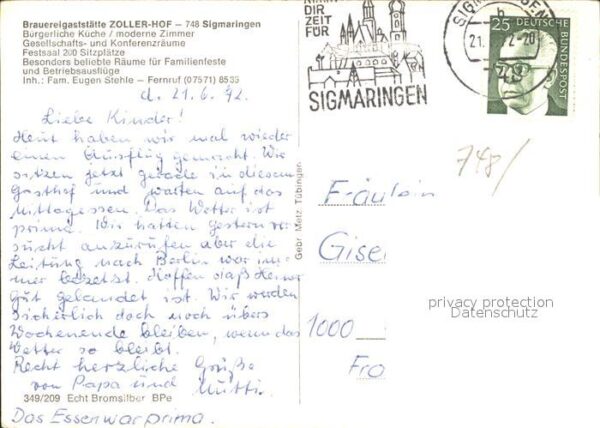 Brauereigaststätte ZOLLER-HOF – 748 Sigmaringen
Bürgerliche Küche / moderne Zimmer
Gesellschafts- und Konferenzräume
Festsaal 200 Sitzplätze
Besonders beliebte Räume für Familienfeste
und Betriebsausflüge
Inh.: Fam. Eugen Stehle – Fernruf (07571) 8535
d. 21.6.72.
Liebe Kinder!
Heut haben wir mal wieder
einen Ausflug gemacht. Wir
sitzen jetzt gerade in diesem
Gasthof und warten auf das
Mittagessen. Das Wetter ist
prima. Wir hatten gestern ver
sucht anzurufen aber die
Leitung nach Berlin war im-
mer besetzt. Hoffen daß
gut gelandet ist. Wir werden
sicherlich doch noch übers
Wochenende bleiben, wenn das
Wetter so bleibt.
Recht herzliche Grüße
von Papa und Mutti.
349/209 Echt Bromsilber BPe
Das Essen war prima.
Gebr. Metz, Tübingen
DIR
ZEIT
FÜR
SIGMARINGEN
21.
2-20
25
DEUTSCHE
BUNDESPOST
748/
Fräulein
Gise
privacy protection
Datenschutz
1000
Fro